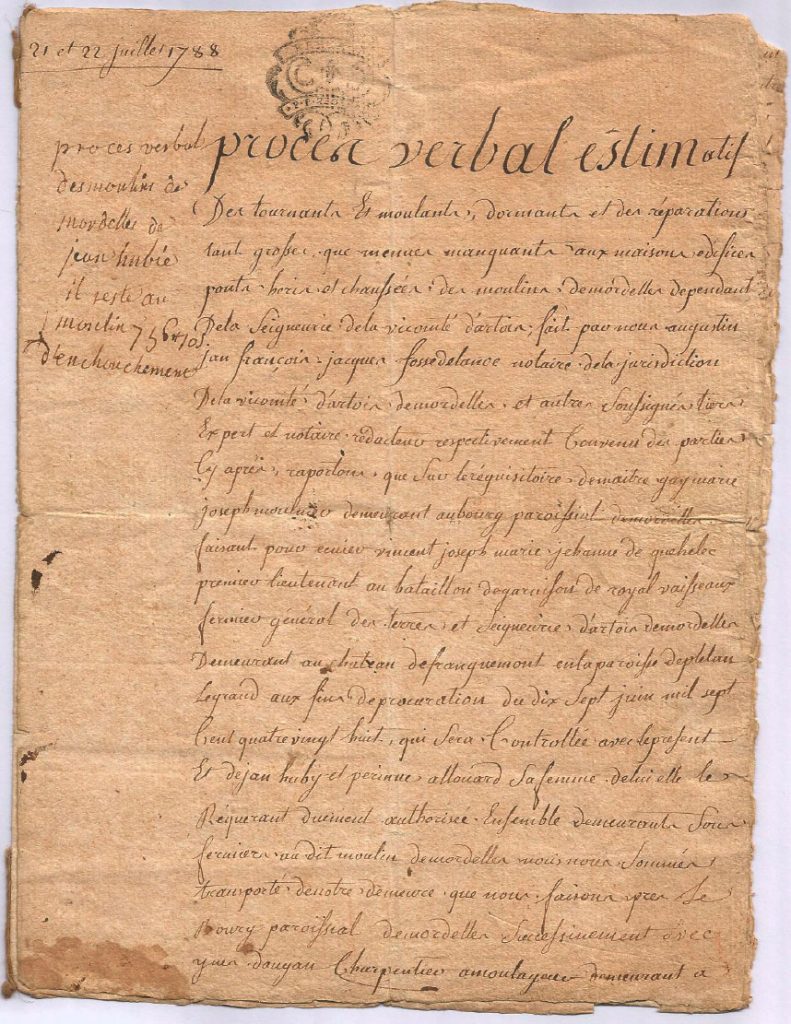 21 et 22 juillet 1788
proces verbal
des moulins de
mordelles de
jean hubié
il reste au
moulin
d'enchouchement
procès verbal estimatif
Des tournants Et moulants, dormants et des réparations
tant grosses, que menues manquants aux maisons edifices
ponts, biais et chaussées, des moulins demordelles dependant
Dela Seigneurie dela vicomté d'artois; fait par nous augustin
jan françois jacques fossedelance notaire dela jurisdiction
Dela vicomté d'artois demordelles et autres Soussignés tiers
Expert et notaire rédacteur respectivement Convenu des parties
Cy après, raportons, que Sur leréquisitoire demaitre guy marie
joseph mounier demeurant aubourg paroissial demordelles
faisant pour ecuier vincent joseph marie jehanne de quehelec
premier lieutenant au bataillon degarnison de royal vaisseaux
fermier général des terres et Seigneurie d'artois demordelles
Demeurant au chateau defranquemont enlaparoisse deplelan
Legrand aux fins deprocuration du dix Sept juin mil sept
Cent quatre vingt huit, qui Sera Controllée avec lepresent
Et dejan huby et perinne allouard Safemme delui elle le
Réquerant duement authorisée Ensemble demeurants Sous
fermiers audit moulin demordelles nous nous Sommes
transporté denotre demeure que nous faisons pres Le
Bourg paroissial demordelles Successivement avec
yves dougan Charpentier amoulageur demeurant a